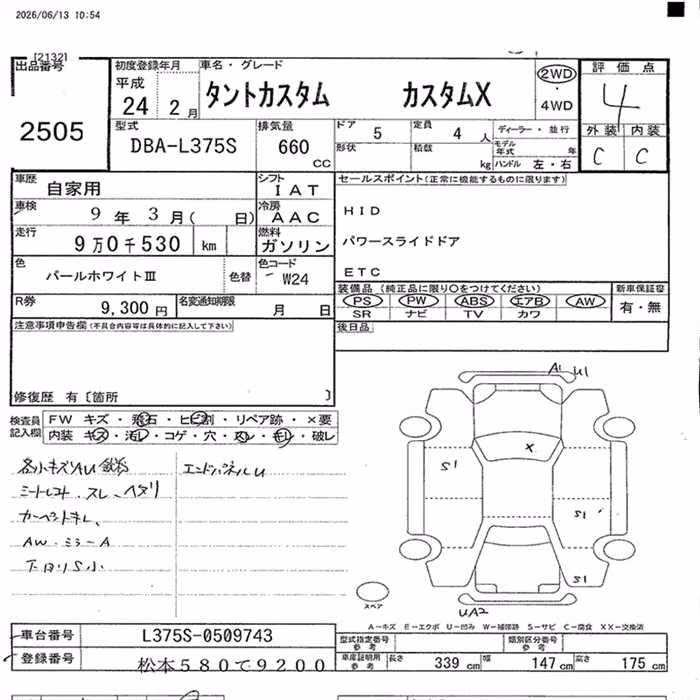 2026/06/13 10:54
[2132]
出品番号
2505
初度登録年月
平成
24 2月
車名・グレード
タントカスタム カスタムX
2WD
・
4WD
評価点
4
外装 内装
C C
型式
DBA-L375S
排気量
660
CC
ドア 5
定員 4 人
ディーラー・並行
形状
積数
kg
モデル年式 年
ハンドル 左・右
車歴
自家用
シフト
IAT
セールスポイント(正常に機能するものに限ります)
車検
9年 3月( 日)
冷房
AAC
HID
走行
9万0千530 km
燃料
ガソリン
パワースライドドア
色
パールホワイトⅢ
色替
色コード
W24
ETC
装備品 (純正品に限り○をつけてください)
新車保証書
PS PW ABS エアB AW
有・無
SR ナビ TV カワ
R券
9,300円
名変通知期限
月 日
後日品
注意事項申告欄(不具合内容等は具体的に記入して下さい)
修復歴 有〔箇所 〕
検査員
記入欄
FW キズ・飛石・ヒビ割・リペア跡・×要
内装 キズ・汚レ・コゲ・穴・スレ・キレ・破レ
各小キズAU
エンドパネルU
シートレスト、スレ、ヘタリ
カーペットキレ、
AW・ミラーA
下廻りS小
A1 U1
X
S1
S1
S1
UA2
スペア
A-キズ E-エクボ U-凹み W-補修跡 S-サビ C-腐食 XX-交換済
車台番号
L375S-0509743
登録番号
松本580て9200
型式指定番号
参考
類別区分番号
参考
車庫証明用
参考
長さ 339 cm
幅 147 cm
高さ 175 cm